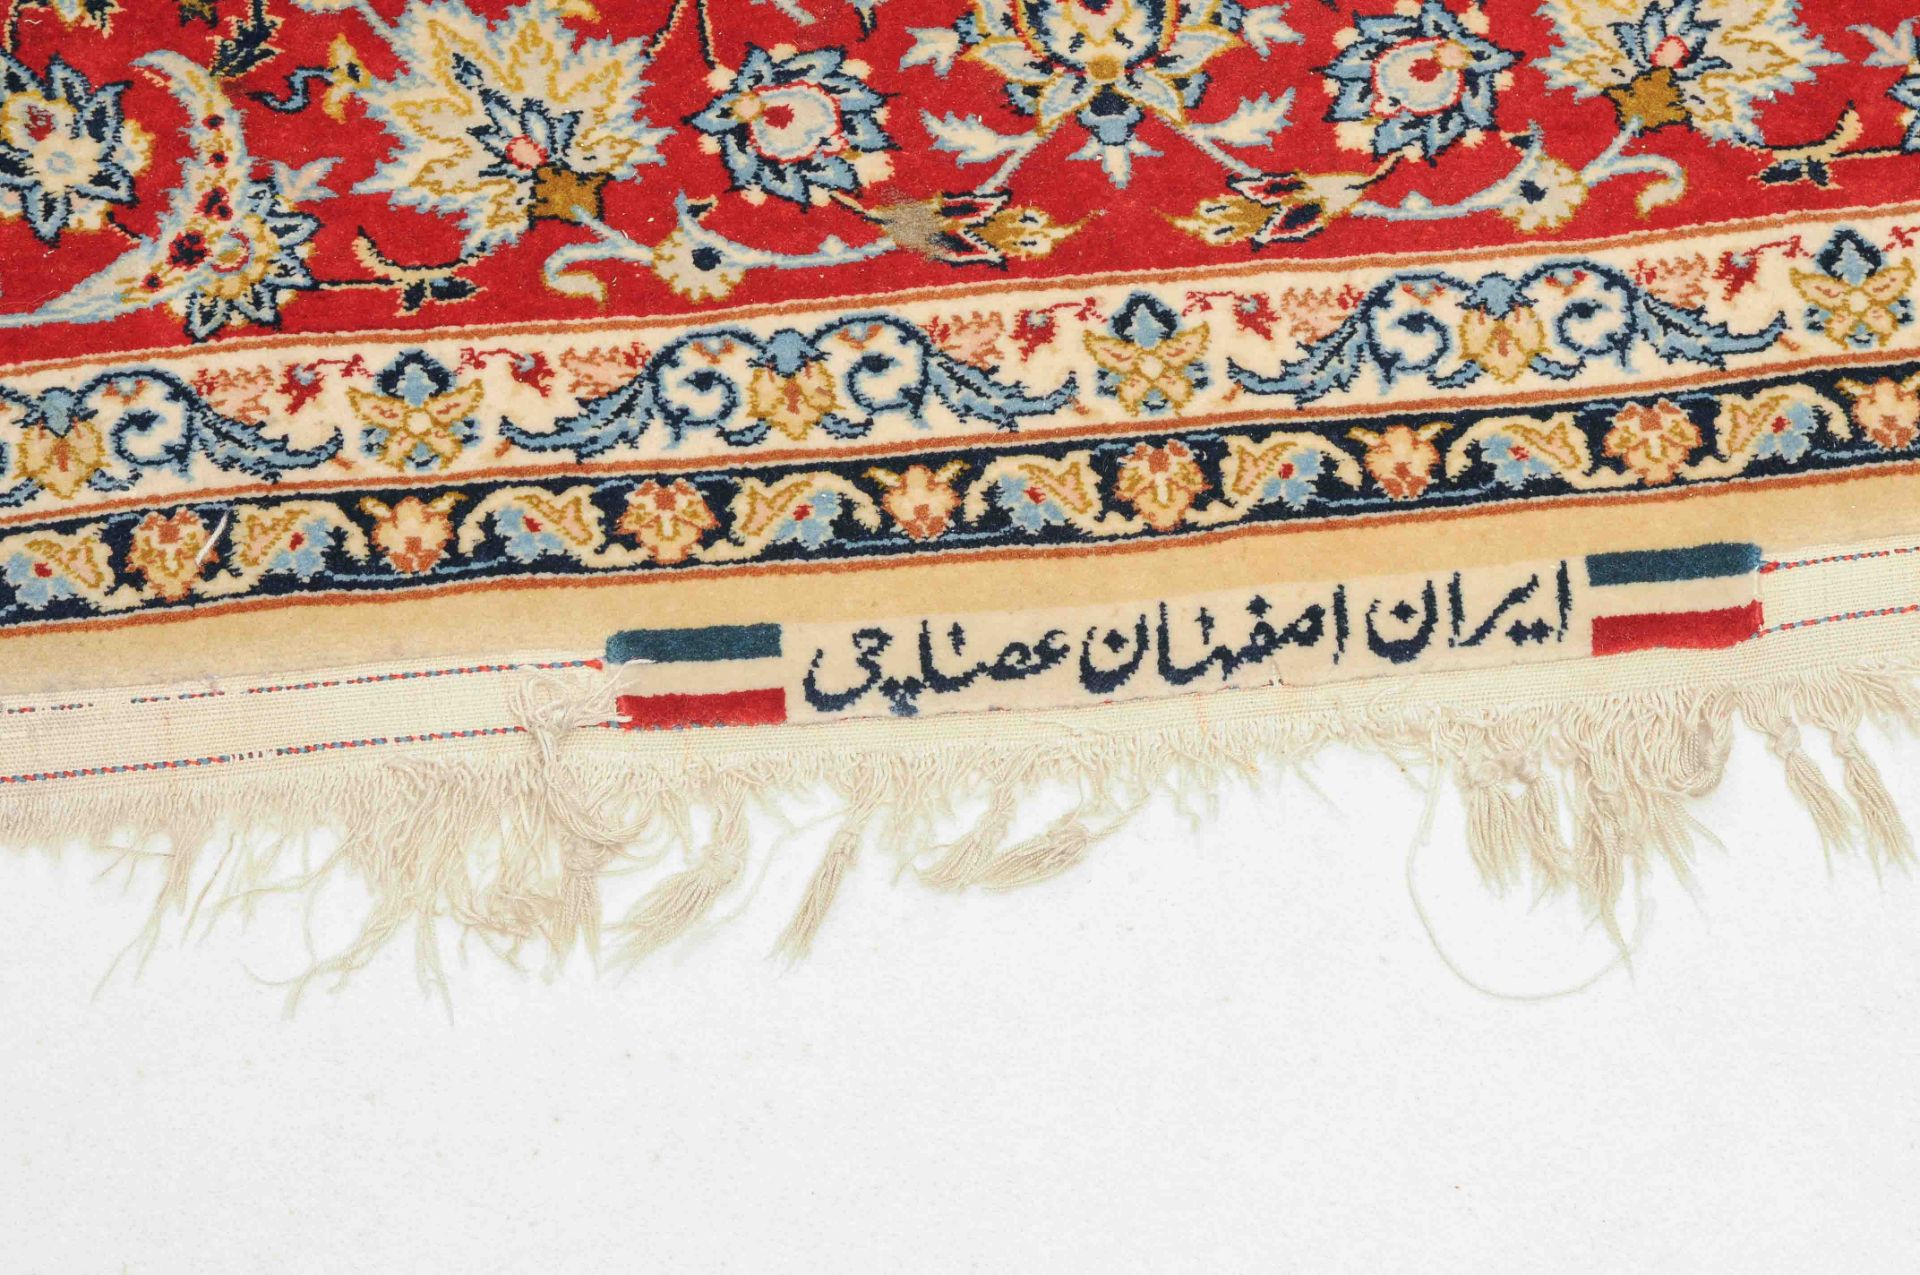 ایران اصفهان عضایچی